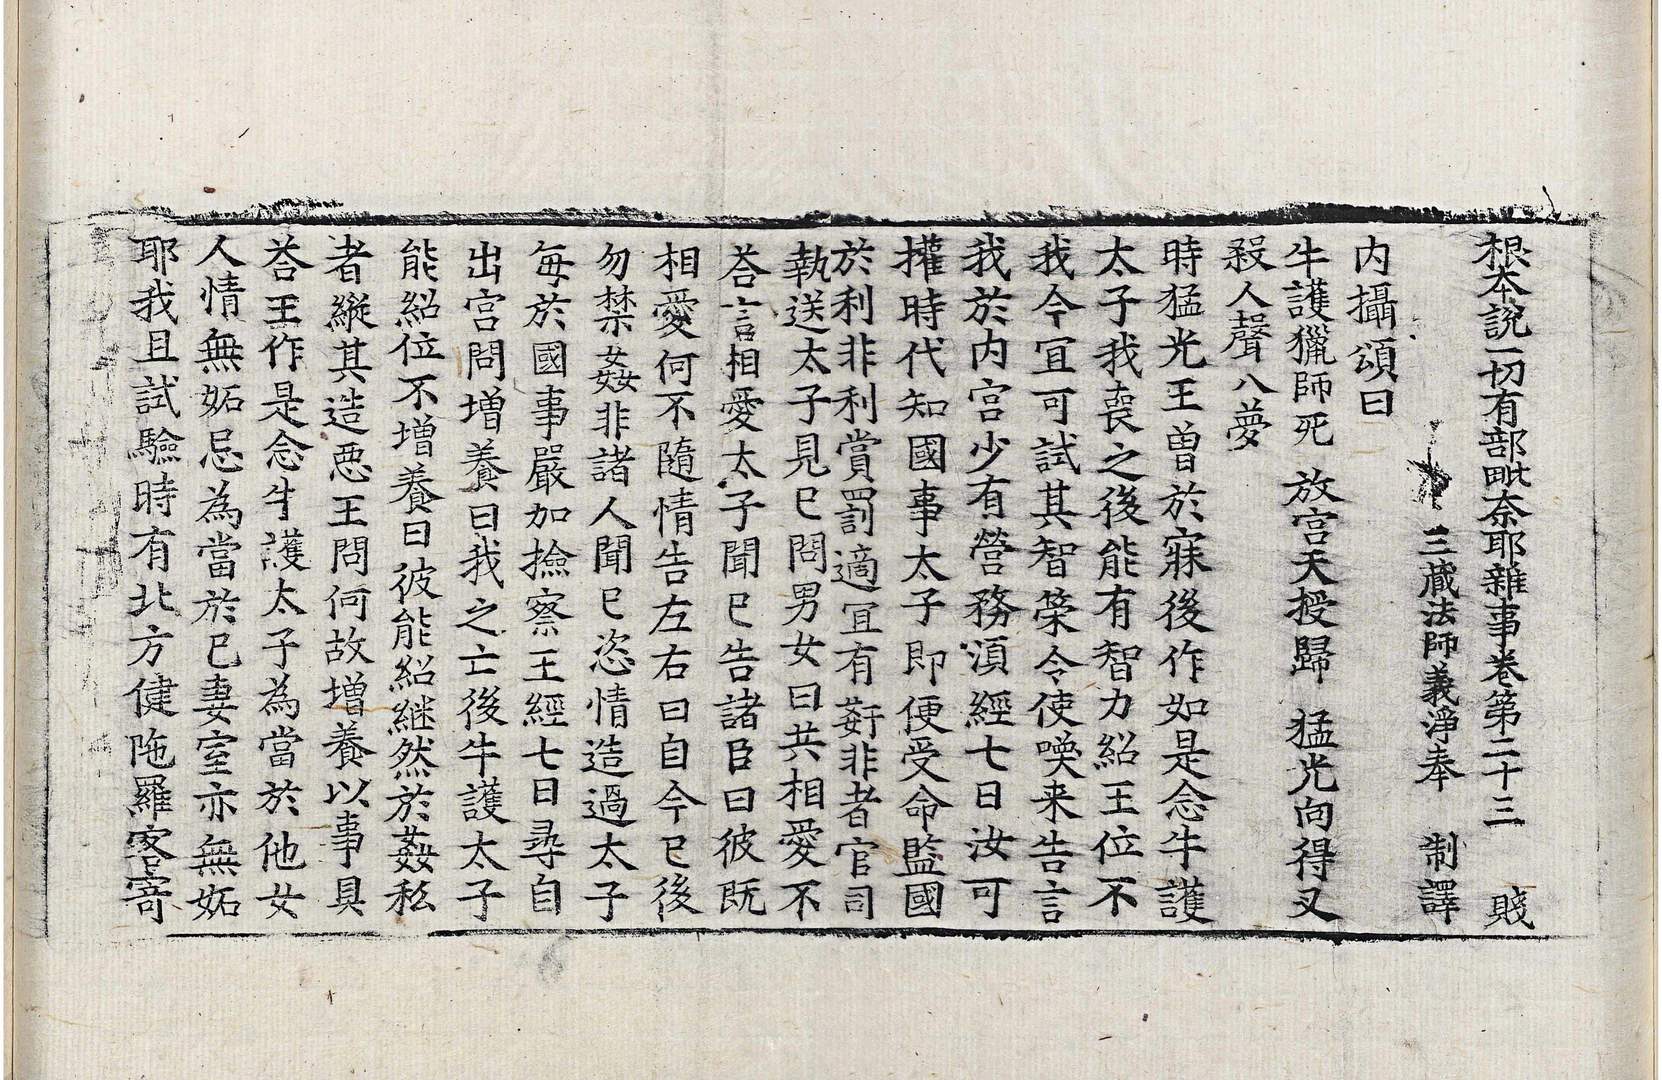 根本說一切有部毗奈耶雜事卷第二十三 賤
三藏法師義淨奉 制譯
内攝頌曰
牛護獵師死 放宫天授歸 猛光向得叉
殺人聲八夢
時猛光王曽於寐後作如是念牛護
太子我䘮之後能有智力紹王位不
我今冝可試其智榮令使喚来告言
我於内宫少有營務湏經七日汝可
權時代知國事太子即便受命監國
於利非利賞罰適冝有姧非者官司
執送太子見已問男女曰共相愛不
荅言相愛太子聞已告諸臣曰彼既
相愛何不隨情告左右曰自今已後
勿禁姦非諸人聞已恣情造過太子
每於國事嚴加撿察王經七日尋自
出宫問増養曰我之亡後牛護太子
能紹位不増養曰彼能紹継然於姦私
者縱其造惡王問何故増養以事具
荅王作是念牛護太子為當於他女
人情無妬忌為當於已妻室亦無妬
耶我且試驗時有北方健陁羅客寄